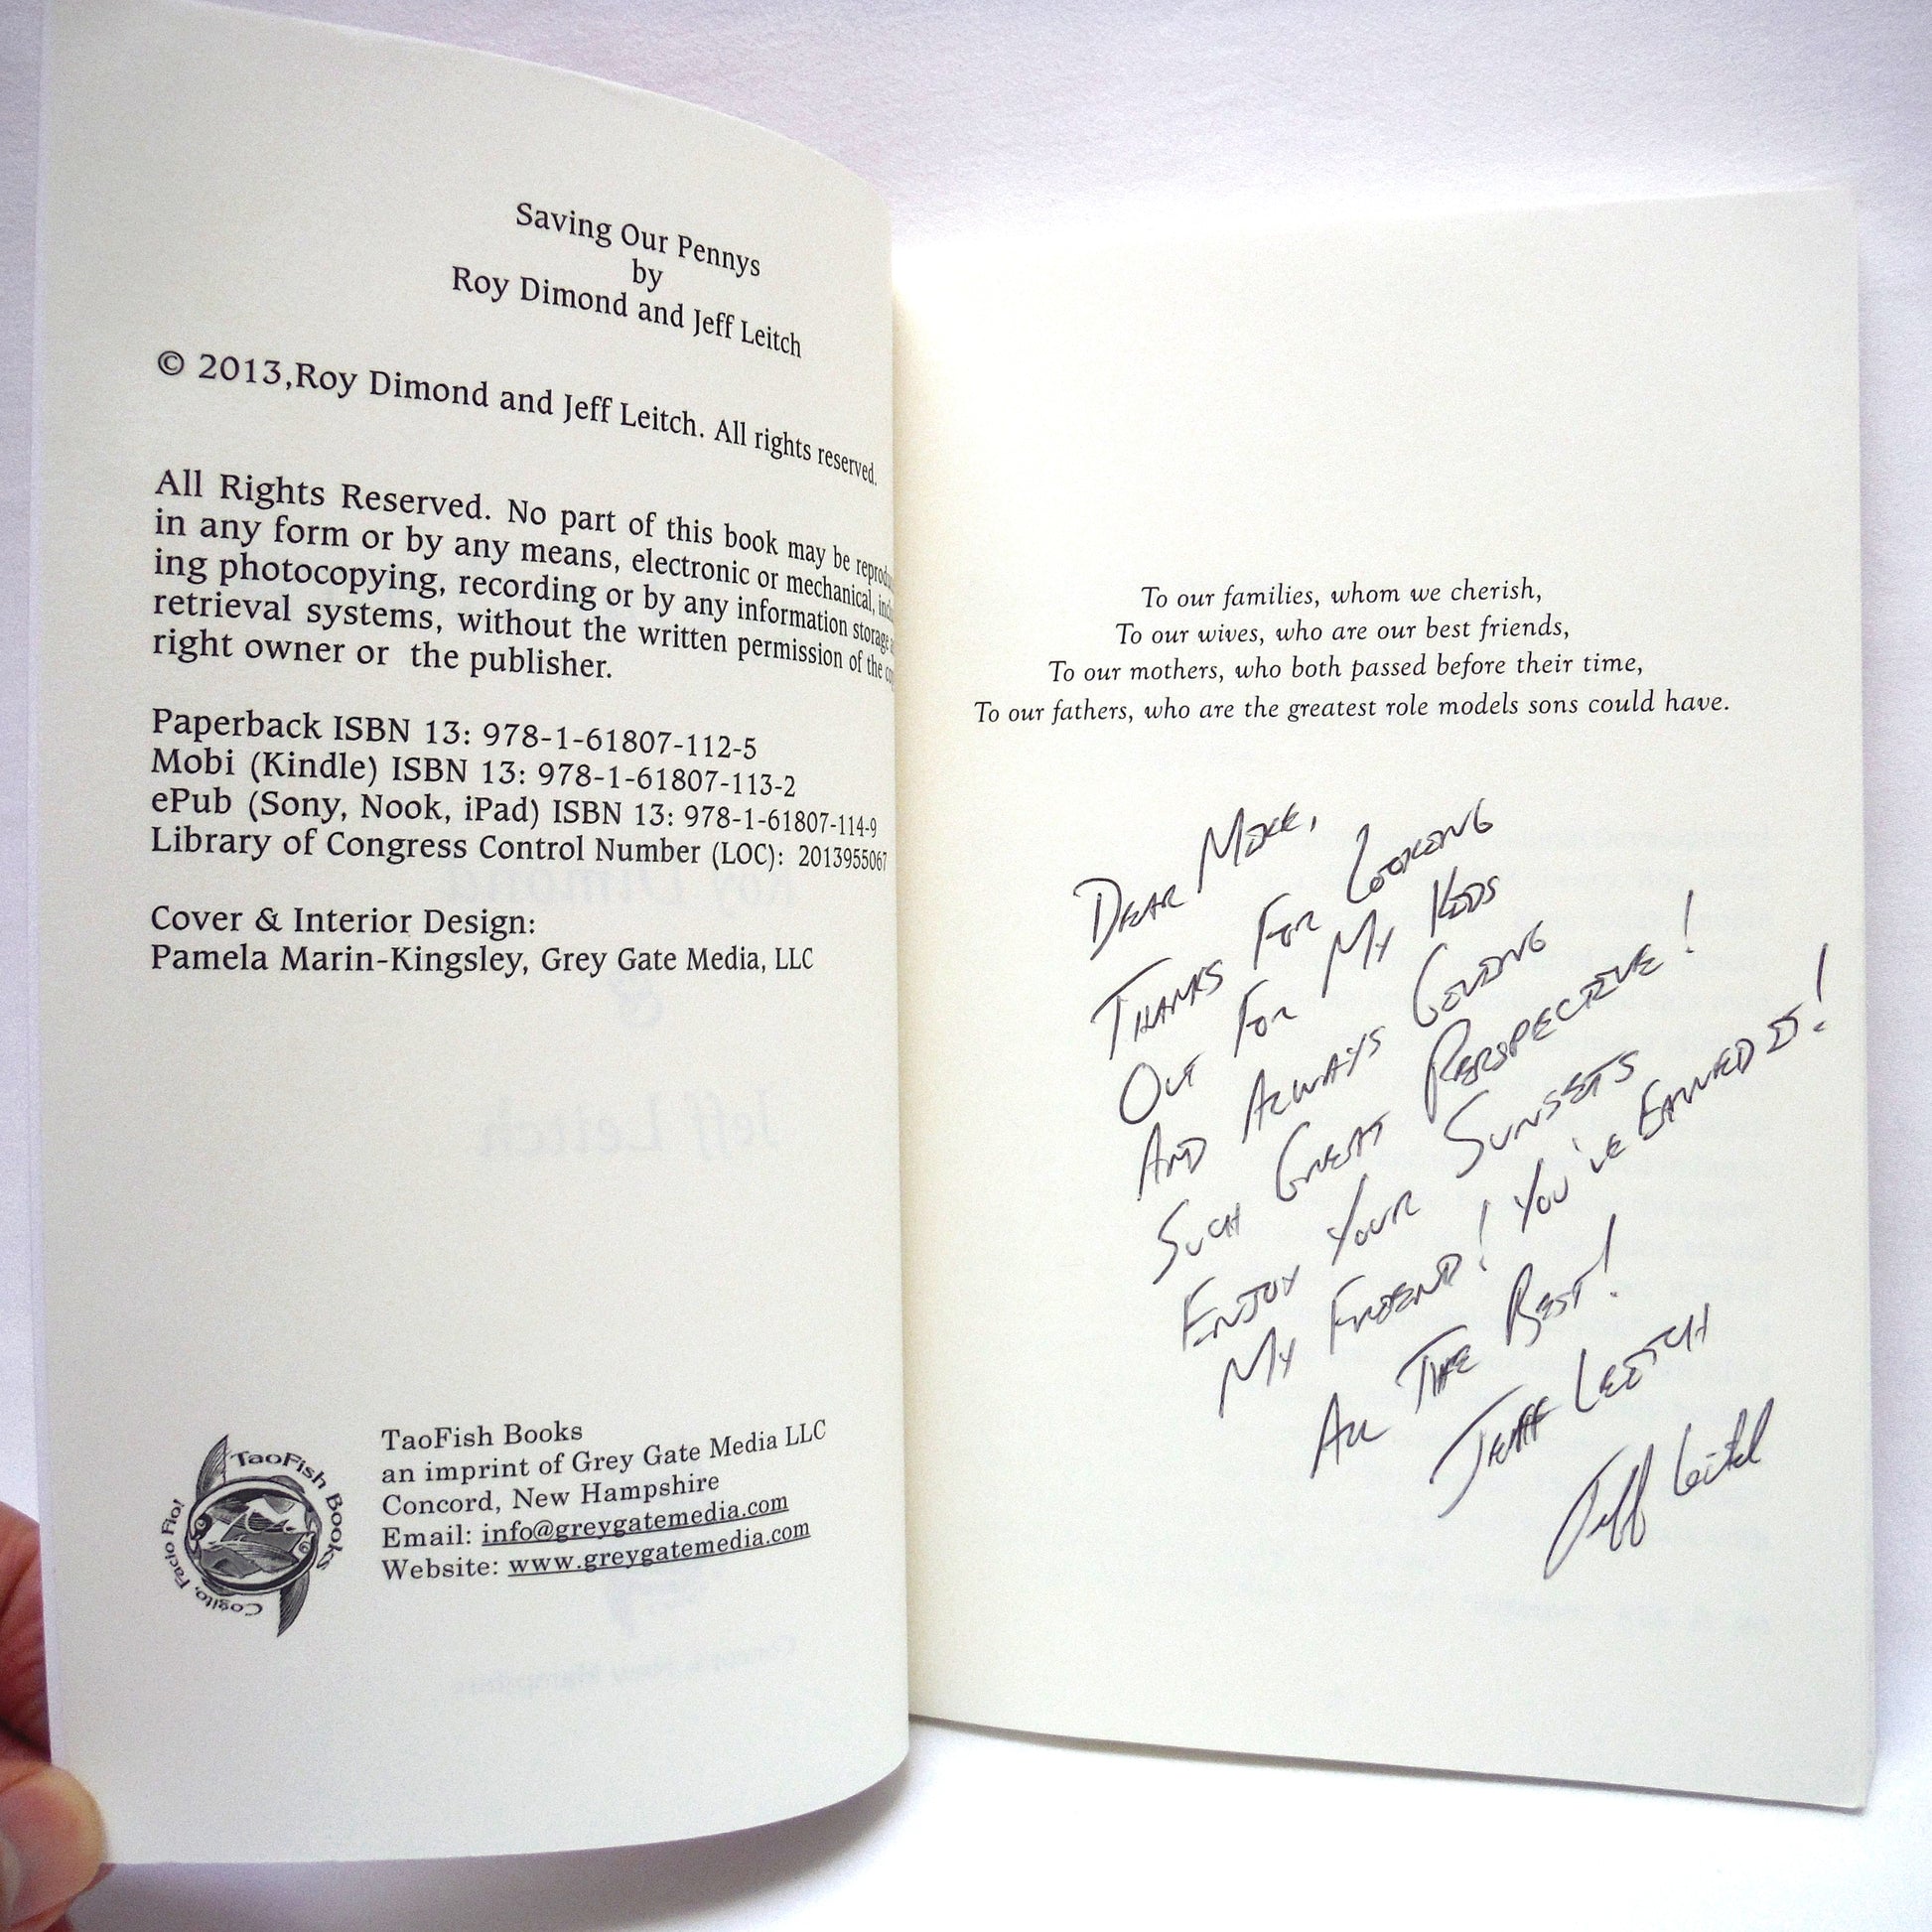 Saving Our Pennys
by
Roy Dimond and Jeff Leitch
© 2013,Roy Dimond and Jeff Leitch. All rights reserved.
All Rights Reserved. No part of this book may be
in any form or by any means, electronic or mechanical,
ing photocopying, recording or by any information storage
retrieval systems, without the written permission of the
right owner or the publisher.
Paperback ISBN 13: 978-1-61807-112-5
Mobi (Kindle) ISBN 13: 978-1-61807-113-2
ePub (Sony, Nook, iPad) ISBN 13: 978-1-61807-114-9
Library of Congress Control Number (LOC): 2013955067
Cover & Interior Design:
Pamela Marin-Kingsley, Grey Gate Media, LLC
TaoFish Books
Cogito, Facio Fio!
TaoFish Books
an imprint of Grey Gate Media LLC
Concord, New Hampshire
Email: info@greygatemedia.com
Website: www.greygatemedia.com
To our families, whom we cherish,
To our wives, who are our best friends,
To our mothers, who both passed before their time,
To our fathers, who are the greatest role models sons could have.
DEAR MIKE,
THANKS FOR LOOKING
OUT FOR MY KIDS
AND ALWAYS GIVING
SUCH GREAT PERSPECTIVE!
ENJOY YOUR SUNSETS
MY FRIEND! YOU'VE EARNED IT!
ALL THE BEST!
JEFF LEITCH
Jeff Leitch